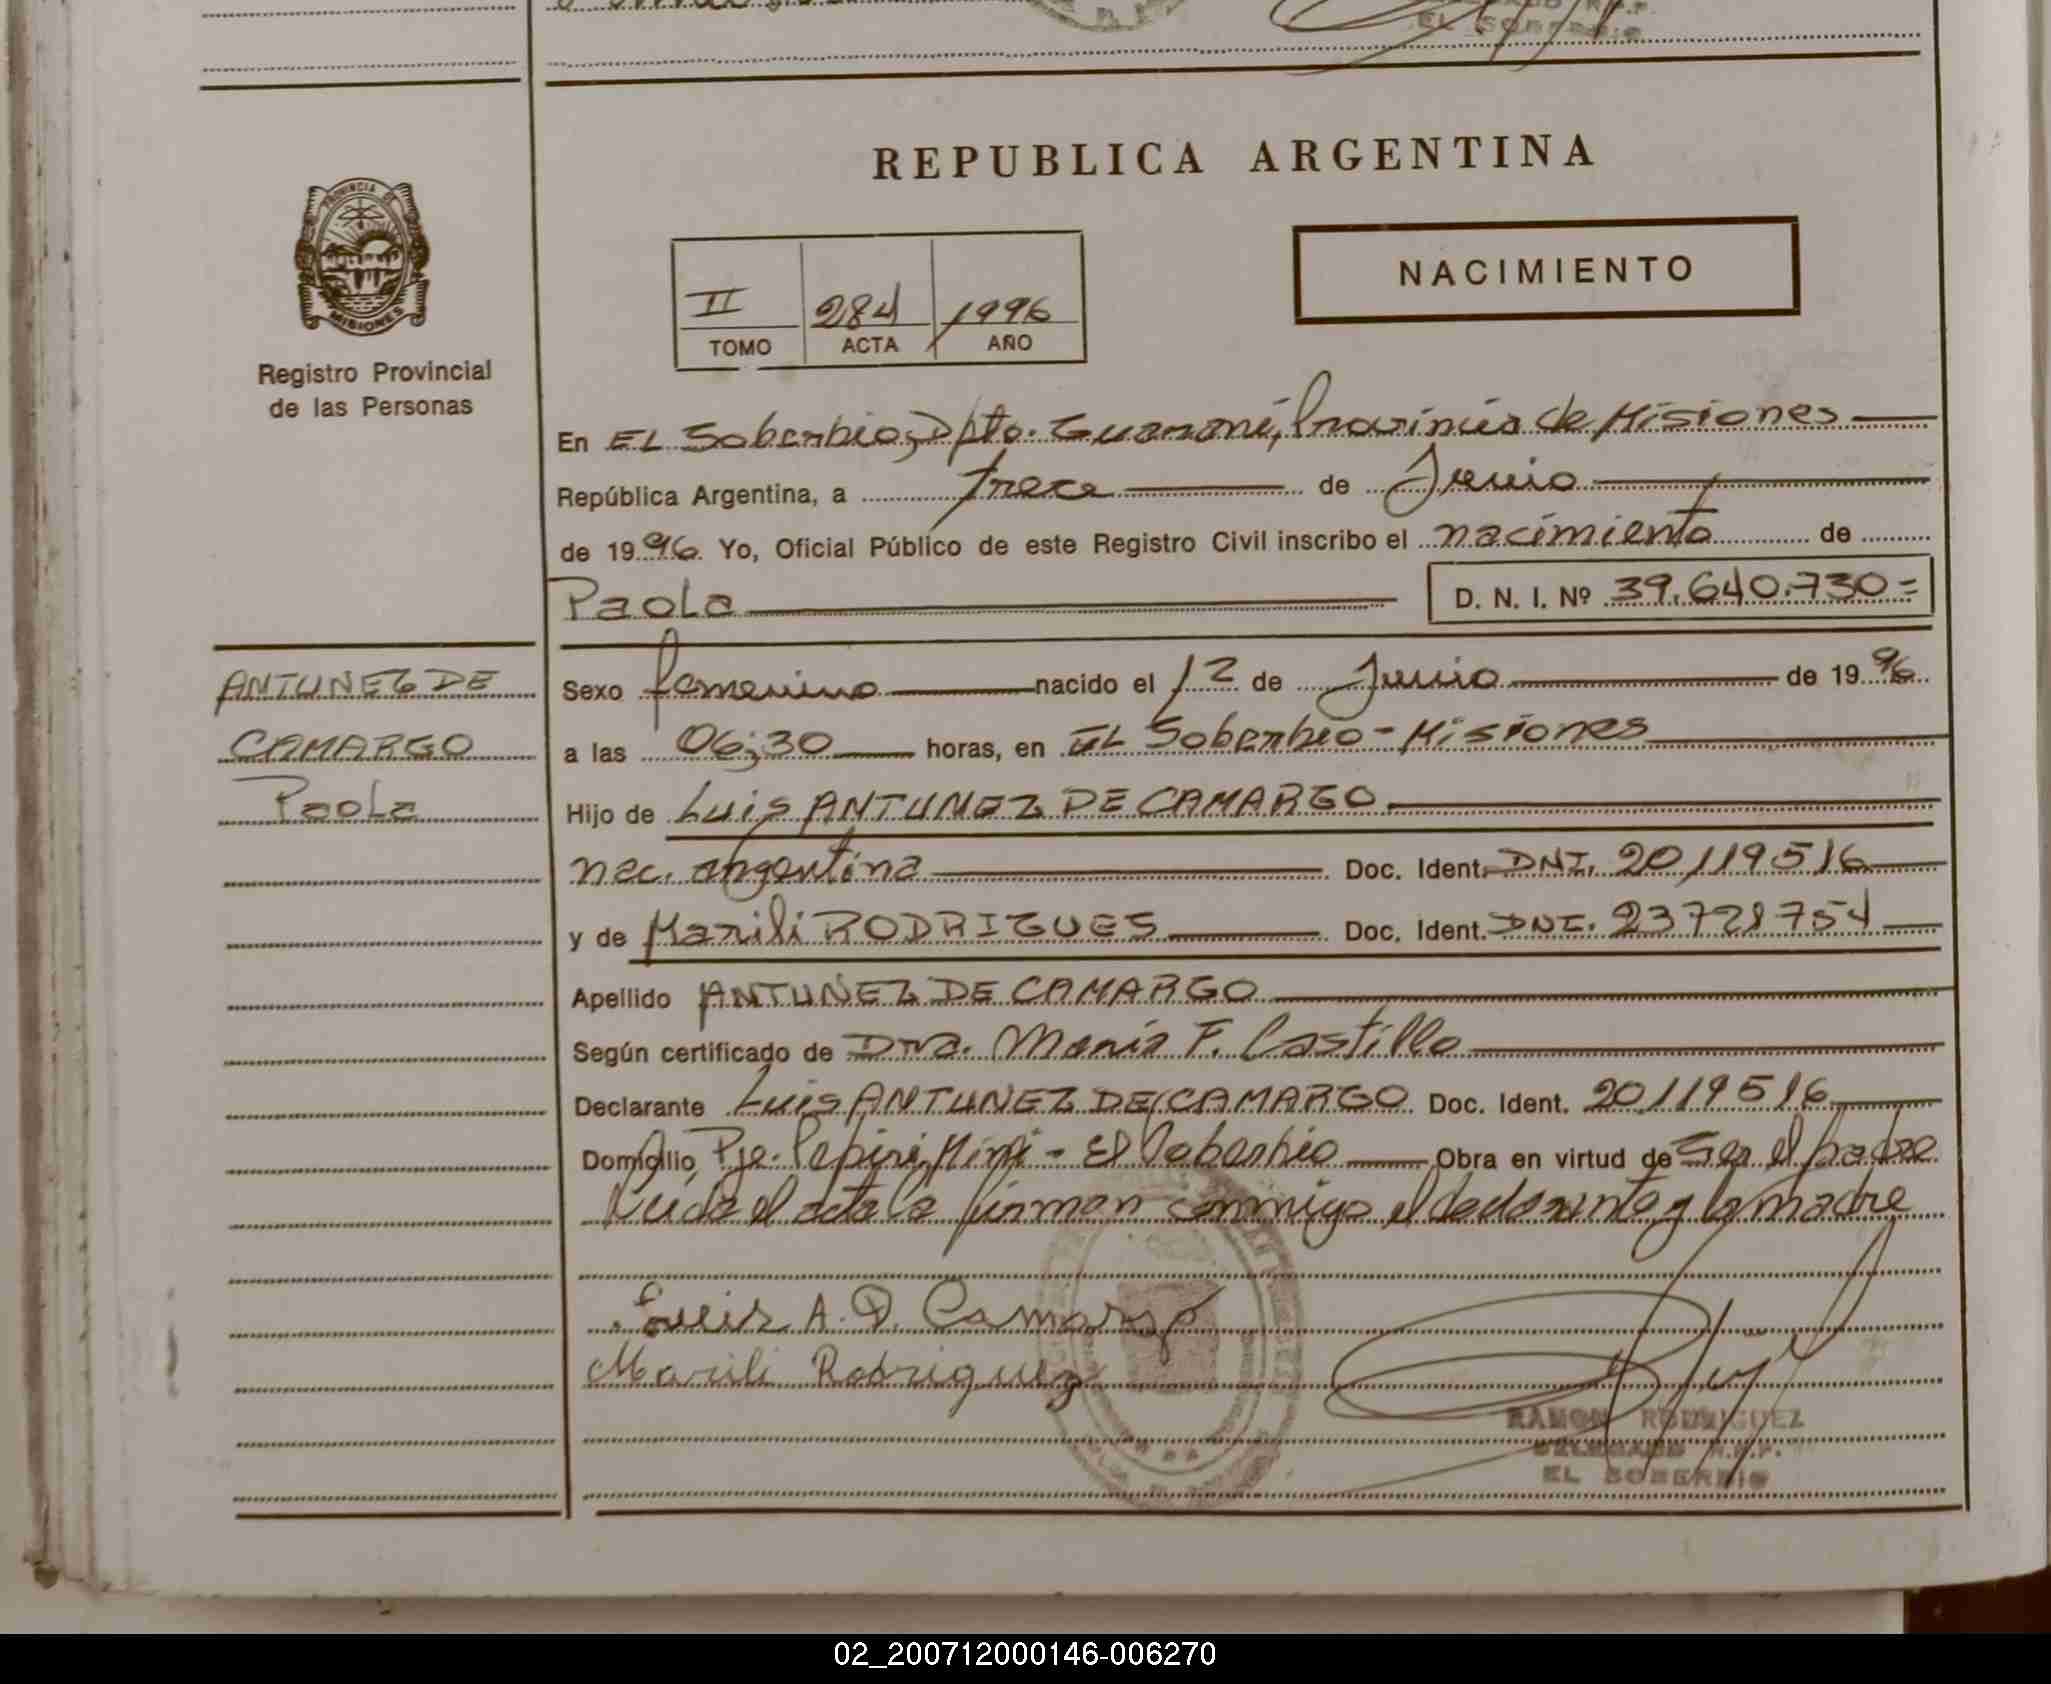 REPUBLICA ARGENTINA
PROVINCIA DE
MISIONES
Registro Provincial
de las Personas
NACIMIENTO
II 284 1996
TOMO ACTA AÑO
En EL Soberbio, Dpto. Guaraní, Provincia de Misiones
República Argentina, a trece de Junio
de 1996 Yo, Oficial Público de este Registro Civil inscribo el nacimiento de
Paola D. N. I. Nº 39.640.730=
ANTUNEZ DE
CAMARGO
Paola
Sexo femenino nacido el 12 de Junio de 1996
a las 06;30 horas, en EL Soberbio - Misiones
Hijo de Luis ANTUNEZ DE CAMARGO
nac. argentina Doc. Ident. DNI. 20119516
y de Marili RODRIGUES Doc. Ident. DNI. 23728754
Apellido ANTUNEZ DE CAMARGO
Según certificado de Dra. María F. Castillo
Declarante Luis ANTUNEZ DE CAMARGO Doc. Ident. 20119516
Domicilio Pje. Pepiri Miní - El Soberbio Obra en virtud de Ser el padre
Leida el acta la firman conmigo el declarante y la madre
Luis A. D. Camargo
Marili Rodriguez
RAMON RODRIGUEZ
DELEGADO R.P.P.
EL SOBERBIO
02_200712000146-006270